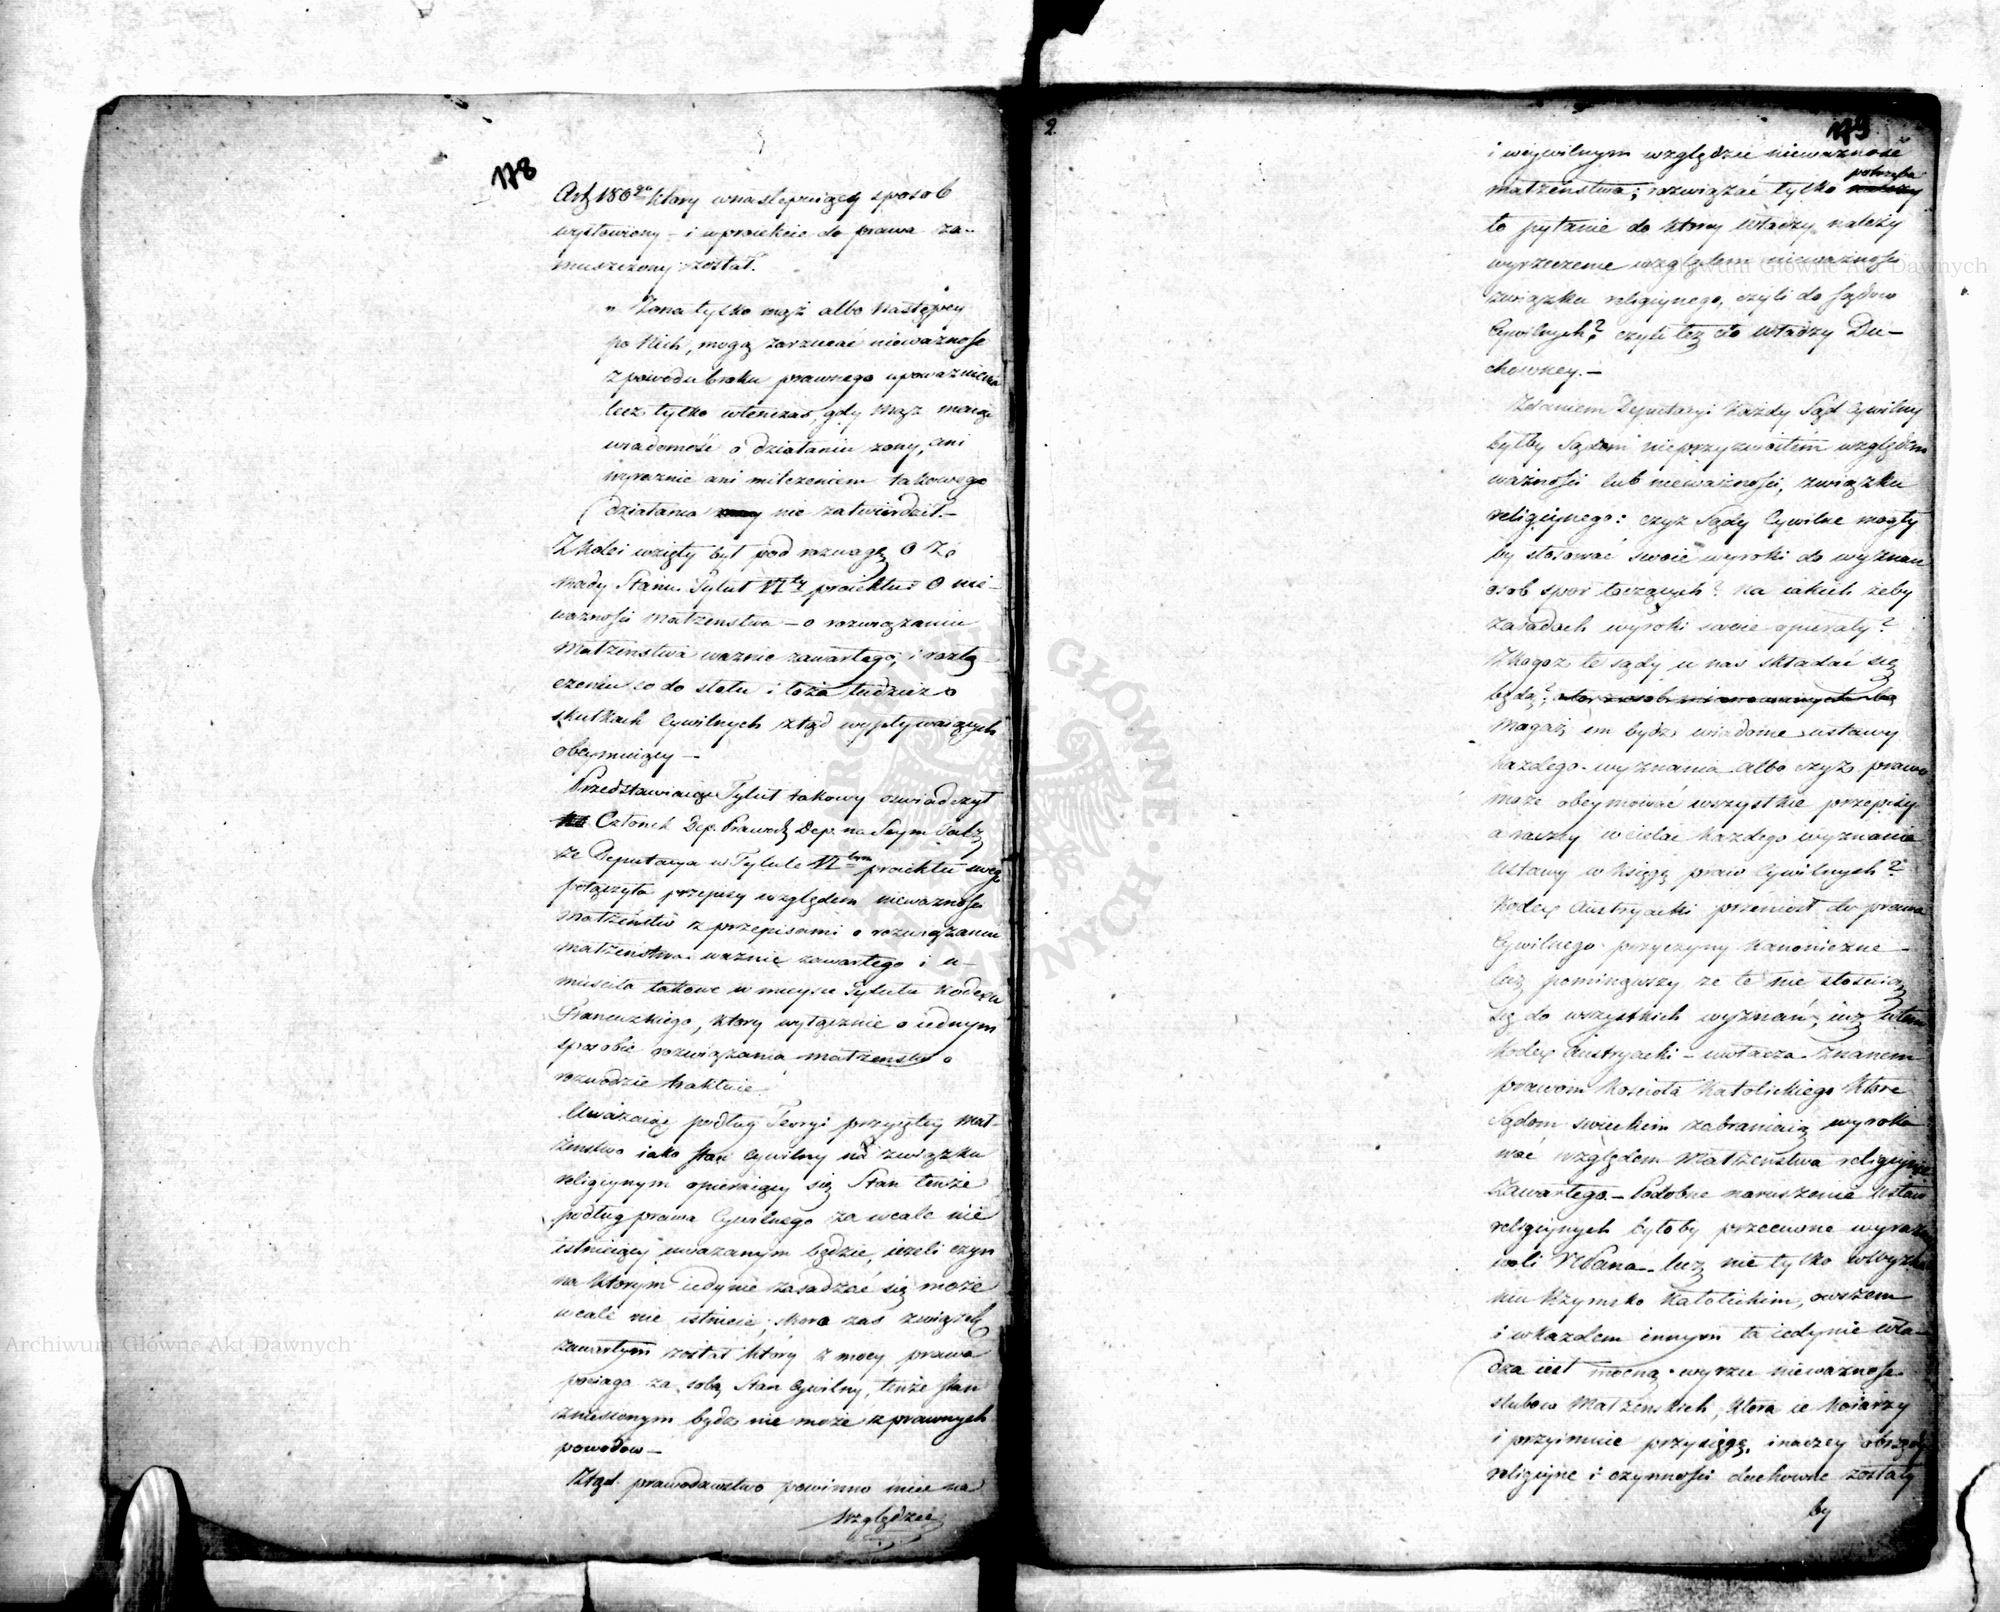 178
Art 186go Który w nastempuiący sposob
wystawiony – i w proiekcie do prawa za-
muszczony został.
„ Żona tylko mąż albo Następcy
po Nich, mogą zarzucać nieważność
z powodu braku prawnego upoważnienia
lecz tylko wtenczas, gdy mąż maiąc
wiadomość o działaniu żony, ani
wyraznie ani milczeniem takowego
działania nie zatwierdził. –
Z kolei wzięty był pod rozwagę O Zo
Rady Stanu Tytuł VIty proiektu: O nie-
ważności Małżenstwa – o rozwiązaniu
Małżenstwa ważnie zawartego, i rozłą-
czeniu co do stołu i łoża tudzież o
skutkach Cywilnych ztąd wypływaiących
obeymuiący –
Przedstawiaiąc Tytuł takowy oswiadczył
Członek Dep. Prawod. Dep. na Seym
że Deputacya w Tytule VItym proiektu swego
połączyła przepisy względem nieważności
małżeństw z przepisami o rozwiązaniu
małżeństwa ważnie zawartego i u-
mieściła takowe w mieysce Tytułu Kodexu
Francuzkiego, który wyłącznie o iednym
sposobie rozwiązania małżenstw o
rozwodzie traktuie
Uważaiąc podług Teoryi przyiętey Mał-
żenstwo iako stan Cywilny na związku
religiynym opieraiący się Stan tenże
podług prawa Cywilnego za wcale nie
istnieiący uważanym będzie, ieżeli czyn
na którym iedynie zasadzać się może
wcale nie istnieie; skoro zaś związek
zawartym został który z mocy prawa
pociąga za sobą Stan Cywilny, tenże stan
zniesionym bydź nie może z prawnych
powodów –
Ztąd prawodawstwo powinno mieć na
względzie
2
179
i w cywilnym względzie nieważność
potrzeba
małżeństwa; rozwiązać tylko należy
to pytanie do którey władzy należy
wyrzeczenie względem nieważności
związku religiynego, czyli do sądow
Cywilnych? czyli też do władzy Du-
chowney. –
Zdaniem Deputacyi każdy Sąd Cywilny
byłby Sądem nieprzyzwoitem względem
ważności lub nieważności, związku
religiynego: czyż Sądy Cywilne mogły
by stosować swoie wyroki do wyznan
osob spór toczących? na iakich żeby
zasadach wyroki swoie opierały?
Z kogoż te sądy u nas składać się
będą?
Mogąż im bydź wiadome ustawy
każdego wyznania albo czyż prawo
może obeymować wszystkie przepisy
a raczey wcielać każdego wyznania
ustawy w księgę praw Cywilnych?
Kodex Austryacki przeniosł do prawa
Cywilnego przyczyny kanoniczne –
lecz pominąwszy że te nie stosuią
się do wszystkich wyznań, iuż w tem
Kodex Austryacki – uwłacza znanem
prawom Kościoła Katolickiego które
Sądom swieckim zabraniaią wyroko
wać względem Małżeństwa religiynie
Zawartego. – Podobne naruszenie ustaw
religiynych byłoby przeciwne wyraźney
woli Pana. lecz nie tylko w wyzna
niu Rzymsko Katolickim, owszem
i w każdem innym ta iedynie wła-
dza iest mocną wyrzec nieważność
slubow Małżenskich, która ie koiarzy
i przyimuie przysięgę, inaczey obrzędy
religiyne i czynności duchowne zostały
by